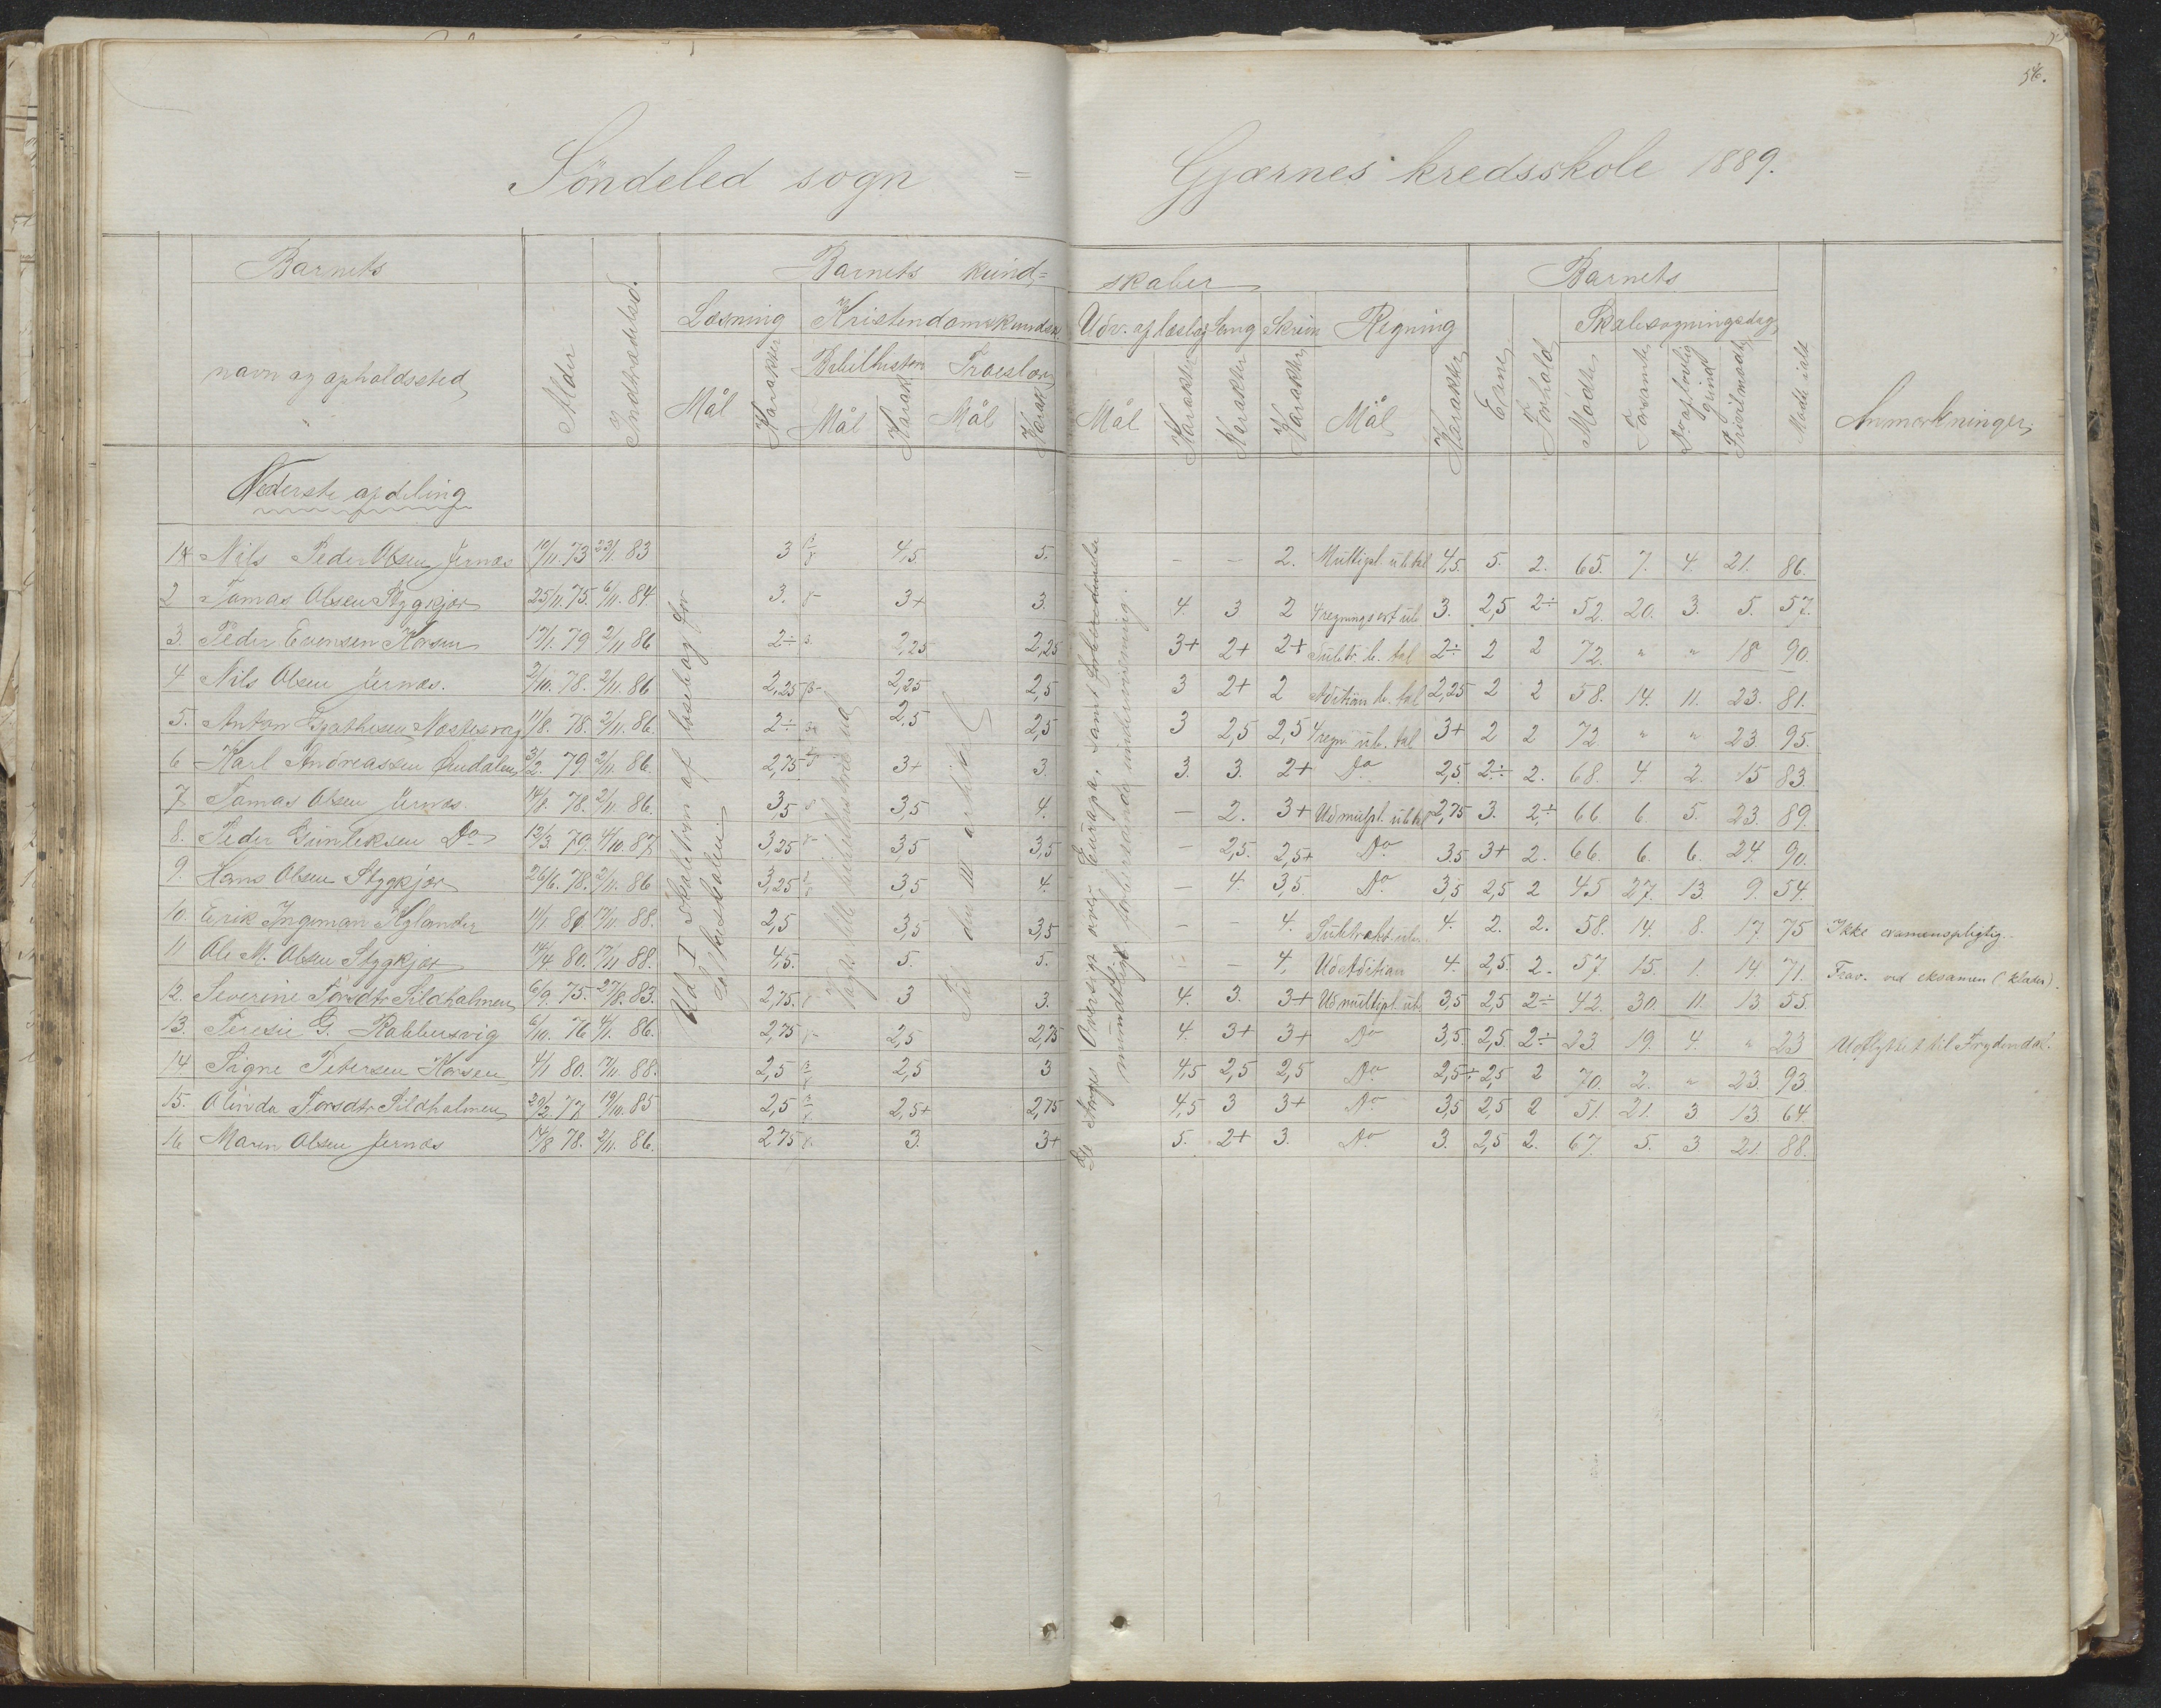 56.
Söndeled sogn = Gjærnes kredsskole 1889.
Barnets
navn og opholdssted
Alder
Indtrædelsesd.
Barnets kund= skaber
Læsning
Kristendomskundsk.
Bibelhistorie
Troeslære
Udv. af læsebog
Sang
Skrivn
Regning
Mål Karakter Mål Karakt Mål Karakt
Mål Karakter Karakter Karakter Mål Karakter
Barnets
Evne Forhold
Skolesøgningsdage
Mødte Forsømte Do af lovlig grund Frivil. mødt
Mødte ialt
Anmærkninger
Nederste afdeling
1 Nils Peder Olsen Jernæs 10/11. 73 23/1. 83 3 4,5 5. — — 2. Multipl. ub. tal 4,5. 5. 2. 65. 7. 4. 21. 86.
2 Tomas Olsen Stygkjær 25/11. 75. 6/11. 84 3. 3+ 3. 4. 3 2 4 regningsart ub. 3. 2,5 2÷ 52. 20. 3. 5. 57.
3. Peder Evensen Korsen 17/1. 79 2/11 86 2÷ 2,25 2,25 3+ 2+ 2+ Subtr. b. tal 2÷ 2 2 72. " " 18 90.
4 Nils Olsen Jernæs. 2/10. 78. 2/11. 86 2,25 2,25 2,5 3 2+ 2 Adition b. tal 2,25 2 2 58. 14. 11. 23. 81.
5. Anton Agathesen Næstesvag 11/8. 78. 2/11. 86. 2÷ 2,5 2,5 3 2,5 2,5 4 regn. ub. tal 3+ 2 2 72 " " 23. 95.
6 Karl Andreassen 3/2. 79. 2/11. 86. 2,75. 3+ 3. 3. 3. 2+ Do 2,5. 2÷ 2. 68. 4. 2. 15 83.
7 Tomas Olsen Jernæs. 14/8. 78. 2/11. 86. 3,5 3,5 4. — 2. 3+ Ud multpl. ub. tal 2,75 3. 2÷ 66 6. 5. 23. 89.
8. Peder Gunleksen Do 12/3. 79. 4/10. 87 3,25 3,5 3,5 — 2,5. 2,5+ Do 3,5 3+ 2. 66. 6. 6. 24. 90.
9. Hans Olsen Stygkjær 26/6. 78. 2/11. 86 3,25 3,5 4. — 4. 3,5. Do. 3,5 2,5 2 45 27. 13. 9. 54.
10. Erik Ingeman Kylander 11/1 81 17/11. 88. 2,5 3,5 3,5 — — 4. Subtrakt. ub. 4. 2. 2. 58. 14. 8. 17. 75 Ikke examenspligtig.
11 Ole M. Olsen Stygkjær 14/4. 80. 17/11 88. 4,5. 5. 5. — — 4. Ud Adition 4. 2,5. 2. 57 15. 1. 14 71. Frav. ved eksamen (klæder).
12. Severine Torsdtr Sildholmen 6/9. 75. 27/8. 83. 2,75. 3 3. 4. 3. 3+ Ud multipl. ub. 3,5 2,5 2÷ 42. 30. 11. 13 55
13. Teresie G. Robbersvig 6/10. 76 4/1. 86. 2,75 2,5 2,75 4. 3+ 3+ Do 3,5. 2,5. 2÷ 23 19. 4. " 23 Udflyttet til Frydendal.
14 Signe Petersen Korsen 4/1 80. 17/11. 88. 2,5 2,5 3 4,5 2,5 2,5 Do 2,5÷ 2,5 2 70. 2. " 23. 93
15. Olinda Torsdtr Sildholmen 29/2. 77 19/10. 85 2,5 2,5+ 2,75 4,5 3 3+ Do 3,5 2,5 2 51. 21. 3 13. 64.
16 Maren Olsen Jernæs 14/8 78. 2/11. 86. 2,75 3. 3+ 5. 2+ 3. Do 3. 2,5 2. 67. 5. 3. 21 88.
Ud I skoletrin af læsebog for folkeskolen
Vogts lille bibelhistorie ud
Til den III artikel
Norges Oversigt over Europa, samt forberedende mundtlig forberedende undervisning.